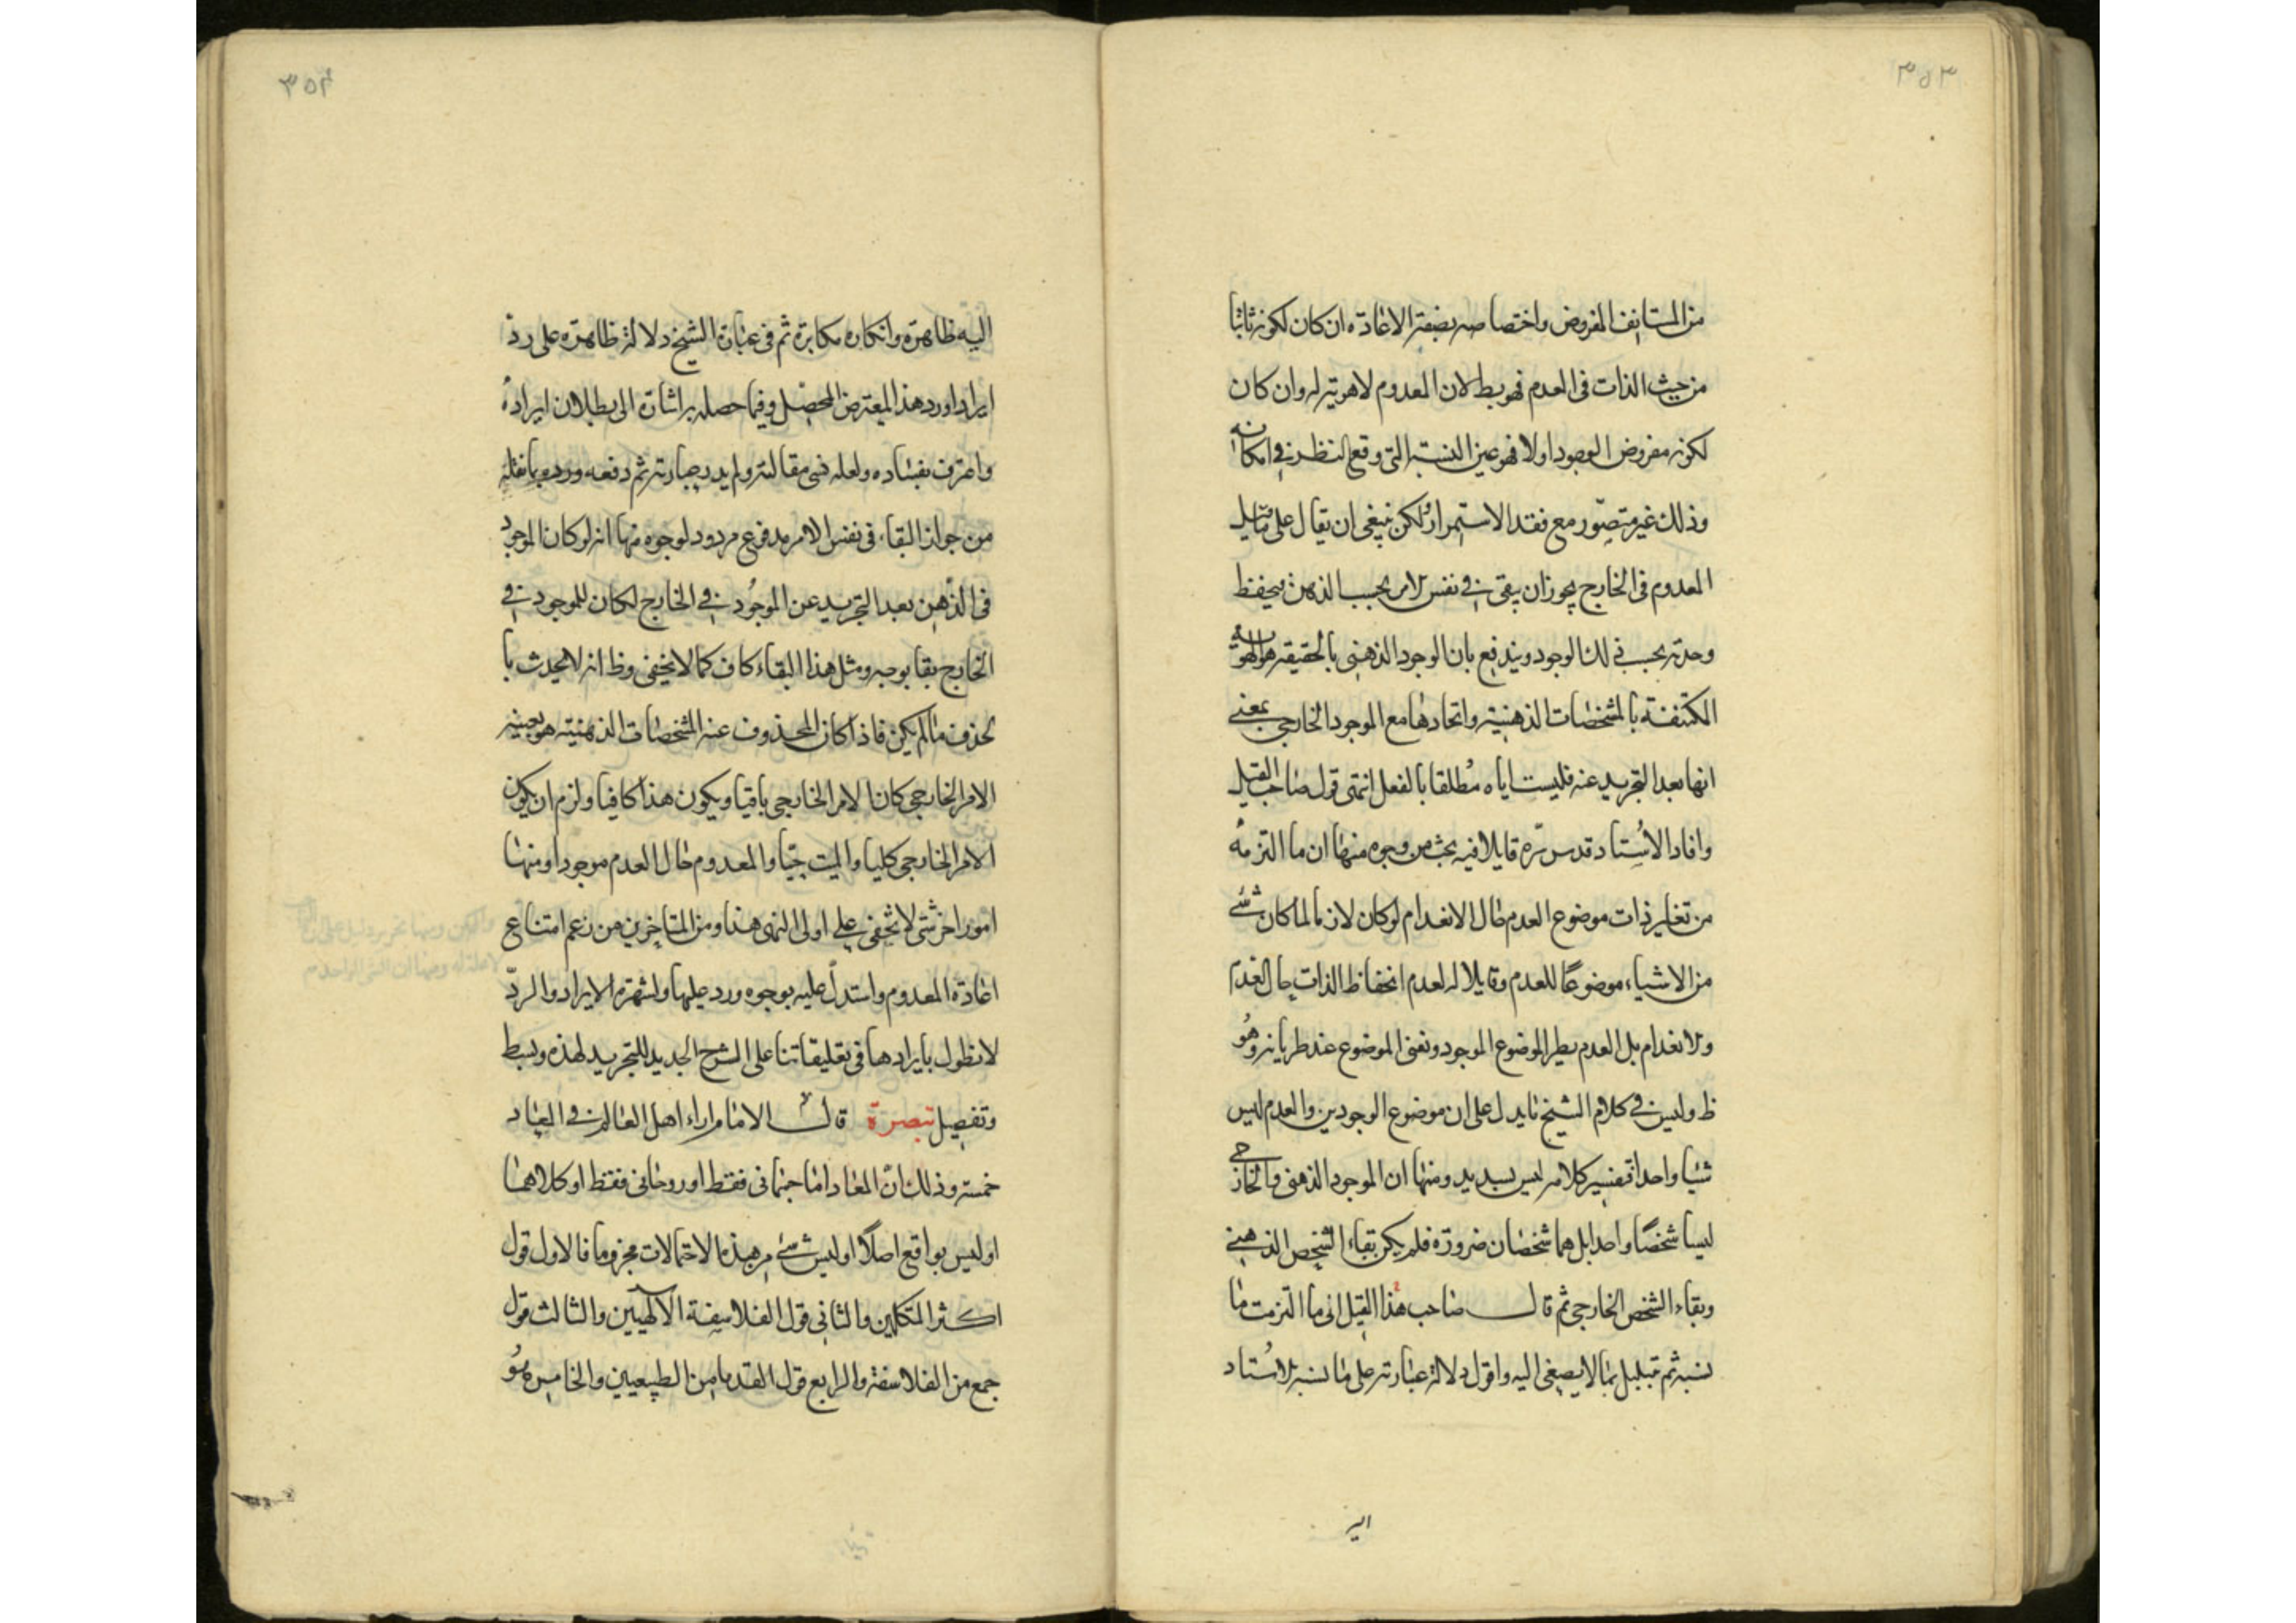 ٣٥٣
من المستانف المفروض واختصاصه بصفة الاعادة ان كان لكونه ثابتا
من حيث الذات فى العدم فهو بط لان المعدوم لا هوية له وان كان
لكونه مفروض الوجود اولا فهو عين النسبة التى وقع النظر فى امكانه
وذلك غير متصور مع فقد الاستمرار ولكن ينبغى ان يقال على ما قيل
المعدوم فى الخارج يجوز ان يبقى فى نفس الامر بحسب الذهن فيحفظ
وحدته بحسب ذلك الوجود ويندفع بان الوجود الذهنى بالحقيقة هو الهوية
المكتنفة بالمشخصات الذهنية واتحادها مع الموجود الخارجى بمعنى
انها بعد التجريد عنه فليست اياه مطلقا بالفعل انتهى قول صاحب القيل
وافاد الاستاد قدس سره قايلا فيه بحث من وجوه منها ان ما التزمه
من تغاير ذات موضوع العدم حال الانعدام لو كان لازما لما كان شئ
من الاشياء موضوعا للعدم وقابلا له لعدم انحفاظ الذات حال العدم
والانعدام بل العدم يطر الموضوع الموجود ونفى الموضوع عند طريانه وهو
ظ وليس فى كلام الشيخ ما يدل على ان موضوع الوجودين والعدم ليس
شيئا واحدا فتفسير كلامه ليس بسديد ومنها ان الموجود الذهنى والخارجى
ليسا شخصا واحدا بل هما شخصان ضرورة فلم يكن بقاء الشخص الذهنى
وبقاء الشخص الخارجى ثم قال صاحب هذا القيل انى ما التزمت ما
نسبه ثم تبلبل بما لا يصغى اليه واقول دلالة عبارته على ما نسبه الاستاد
اليه
٣٥٤
اليه ظاهرة وانكاره مكابرة ثم فى عبارة الشيخ دلالة ظاهرة على رد
ايراد اورد هذا المعترض المحصل وفيما حصله به اشارة الى بطلان ايراده
واعترف بفساده ولعله نسى مقالته ولم يدر عبارته ثم دفعه ورده بما نقله
من جواز البقاء فى نفس الامر مدفوع مردود لوجوه منها انه لو كان الموجود
فى الذهن بعد التجريد عن الموجود فى الخارج لكان للموجود فى
الخارج بقا بوجه ومثل هذا البقاء كاف كما لا يخفى وظ انه لا يحدث با
لحذف ما لم يكن فاذا كان المحذوف عنه المشخصات الذهنية هو بعينه
الامر الخارجى كان الامر الخارجى باقيا ويكون هذا كافيا ولزم ان يكون
الامر الخارجى كليا والميت حيا والمعدوم حال العدم موجودا ومنها
امور اخر شتى لا تخفى على اولى النهى هذا ومن المتاخرين من زعم امتناع
اعادة المعدوم واستدل عليه بوجوه ورد عليها ولشهرة الايراد والرد
لا نطول بايرادها فى تعليقاتنا على الشرح الجديد للتجريد لهذه وبسط
وتفصيل تبصرة قال الامام اراء اهل العالم فى المعاد
خمسة وذلك ان المعاد اما جسمانى فقط او روحانى فقط او كلاهما
او ليس بواقع اصلا او ليس شئ من هذه الاحتمالات مجزوما فالاول قول
اكثر المتكلمين والثانى قول الفلاسفة الالهيين والثالث قول
جمع من الفلاسفة والرابع قول القدماء من الطبيعيين والخامس هو